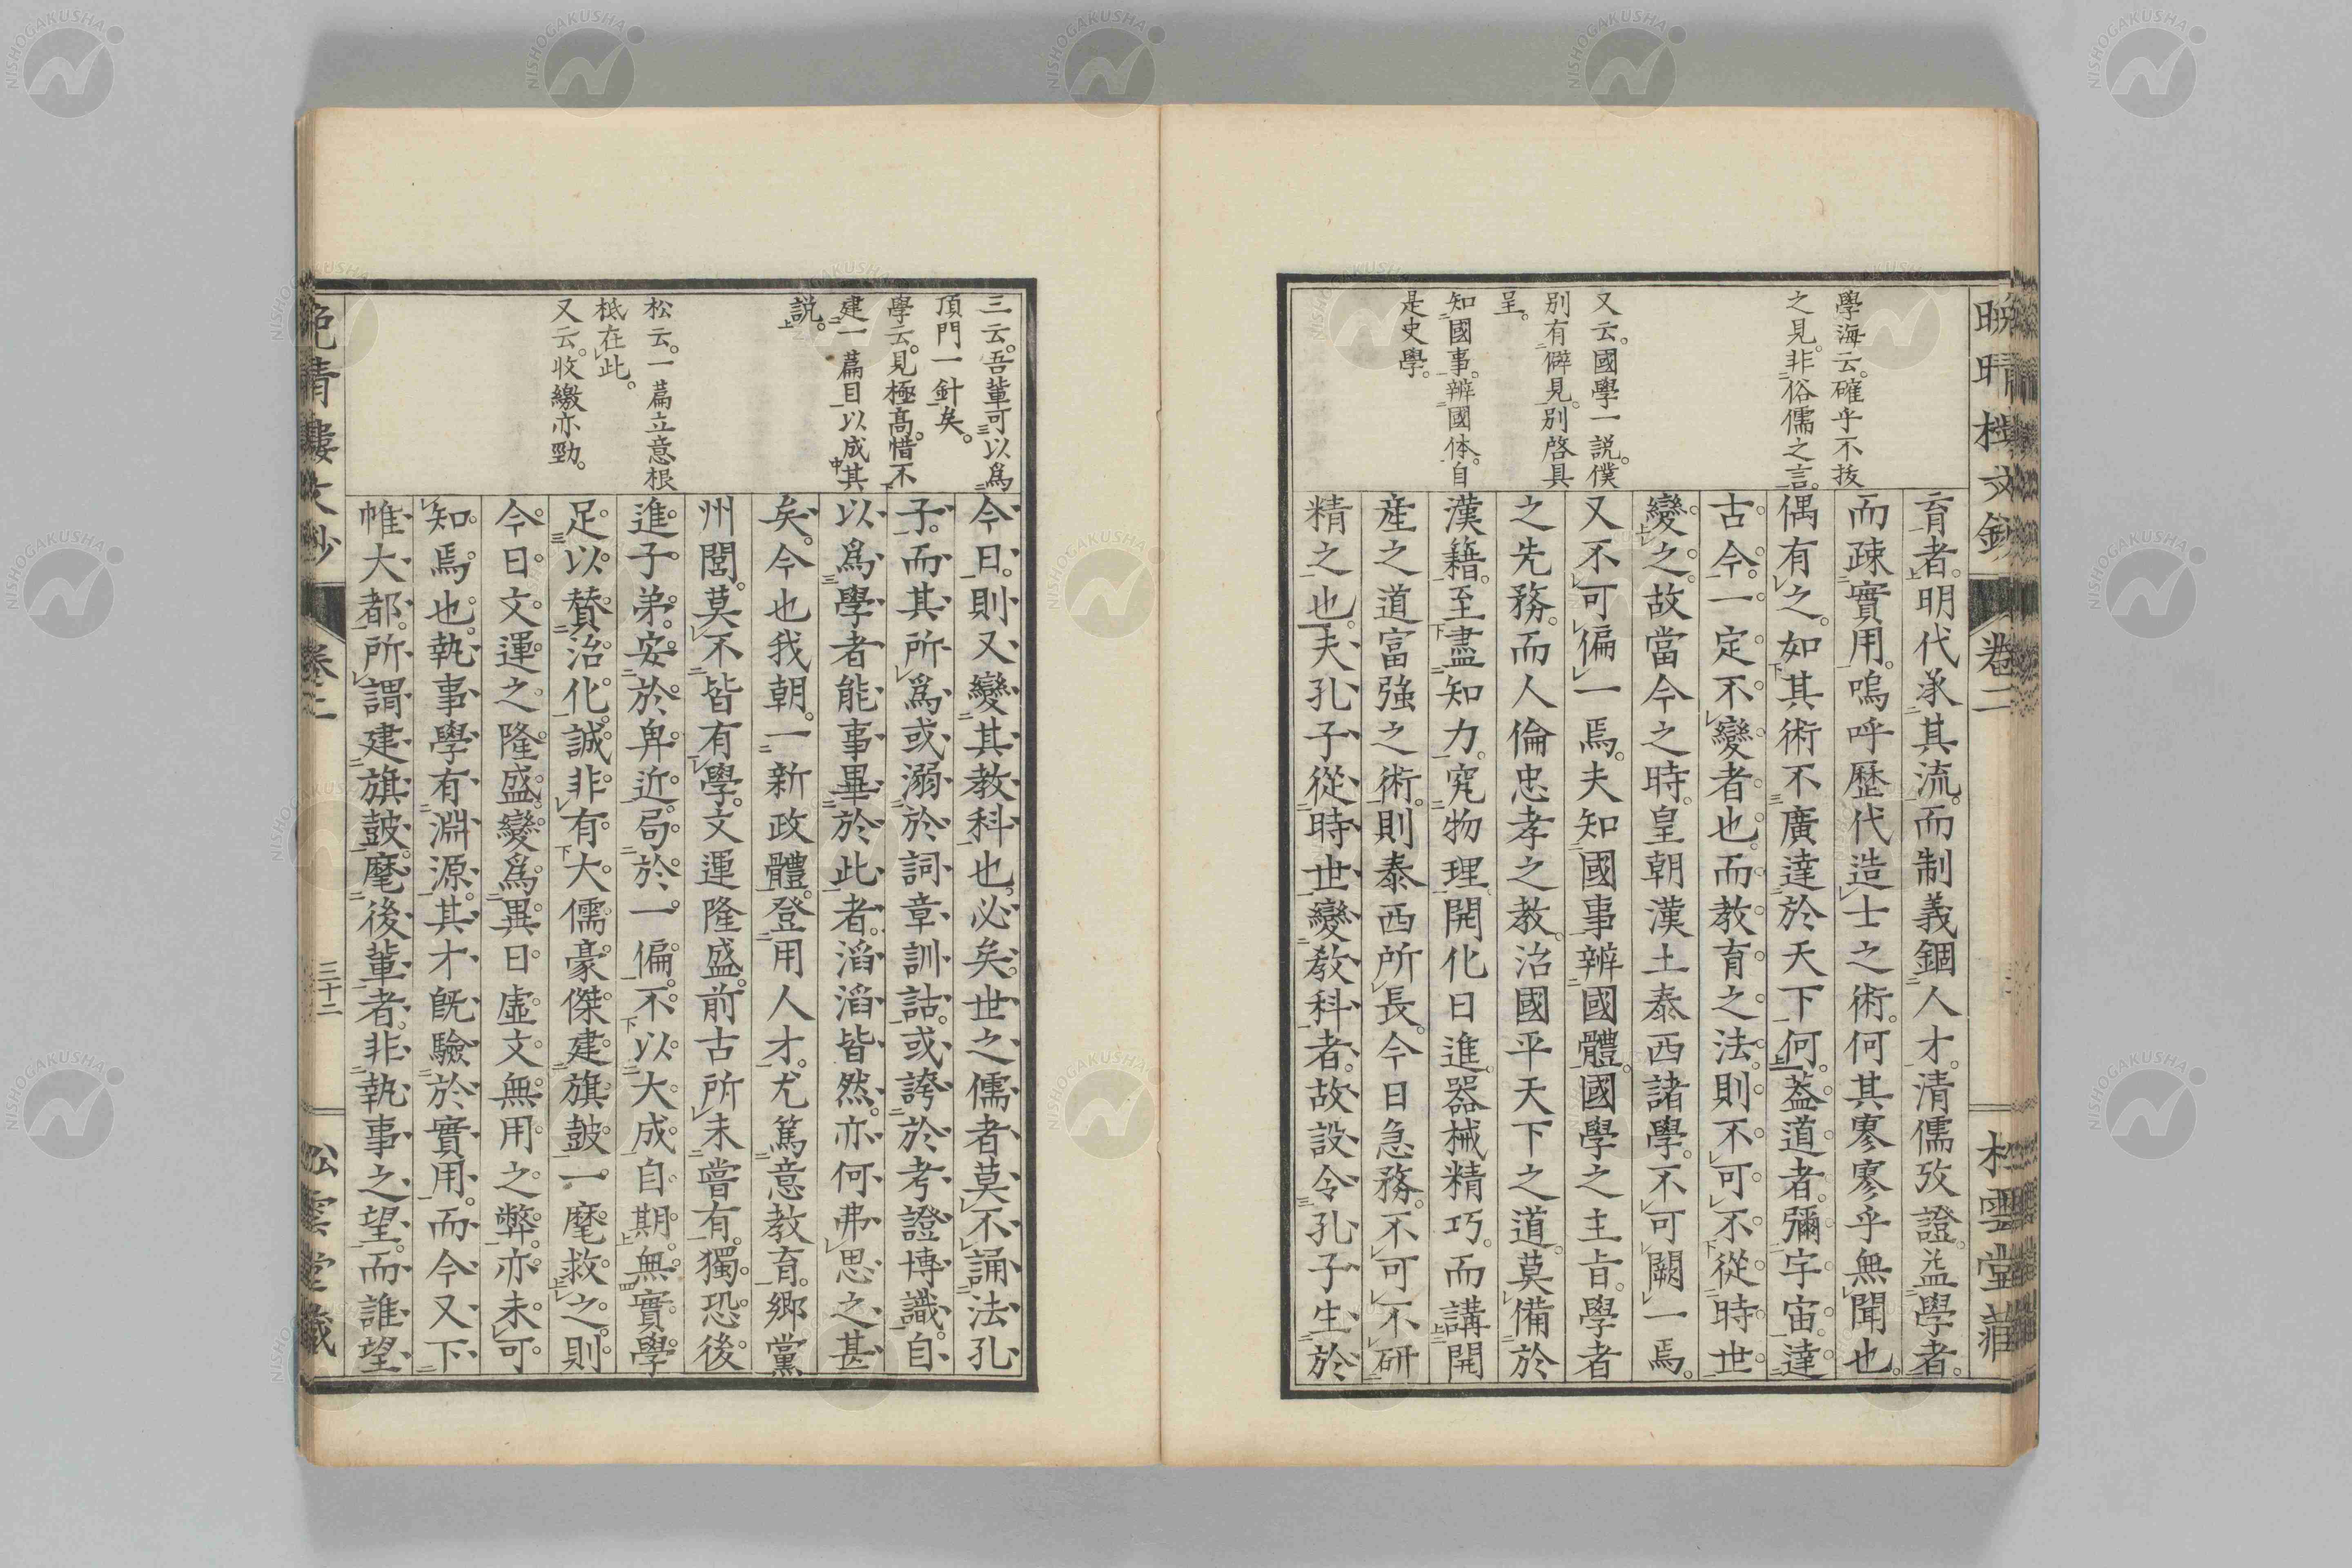 晩晴樓文鈔
卷二
松雲堂藏
學海云。確乎不拔
之見。非俗儒之言。
又云。國學一説。僕
別有僻見。別啓具
呈。
知國事。辨國体。自
是史學。
育者。明代承其流。而制義錮人才。清儒攷證。益學者。
而疎實用。嗚呼歷代造士之術。何其寥寥乎無聞也。
偶有之。如其術不廣達於天下何。蓋道者。彌宇宙。達
古今。一定不變者也。而教育之法。則不可不從時世
變之。故當今之時。皇朝漢土泰西諸學。不可闕一焉。
又不可偏一焉。夫知國事辨國體。國學之主旨。學者
之先務。而人倫忠孝之教。治國平天下之道。莫備於
漢籍。至盡知力。究物理。開化日進。器械精巧。而講開
産之道富強之術。則泰西所長。今日急務。不可不研
精之也。夫孔子從時世變教科者。故設令孔子生於
三云。吾輩可以爲
頂門一針矣。
學云。見極高。惜不
建一篇目以成其
説。
松云。一篇立意根
柢在此。
又云。收繳亦勁。
今日。則又變其教科也。必矣。世之儒者莫不誦法孔
子。而其所爲或溺於詞章訓詁。或誇於考證博識。自
以爲學者能事畢於此者。滔滔皆然。亦何弗思之甚
矣。今也我朝。一新政體。登用人才。尤篤意教育。鄉黨
州閭。莫不皆有學。文運隆盛。前古所未嘗有。獨恐後
進子弟。安於卑近。局於一偏。不以大成自期。無實學
足以賛治化。誠非有大儒豪傑建旗鼓一麾救之。則
今日文運之隆盛。變爲異日虛文無用之弊。亦未可
知焉也。執事學有淵源。其才既驗於實用。而今又下
帷大都。所謂建旗鼓。麾後輩者。非執事之望。而誰望
晩晴樓文鈔
卷二
三十二
松雲堂藏